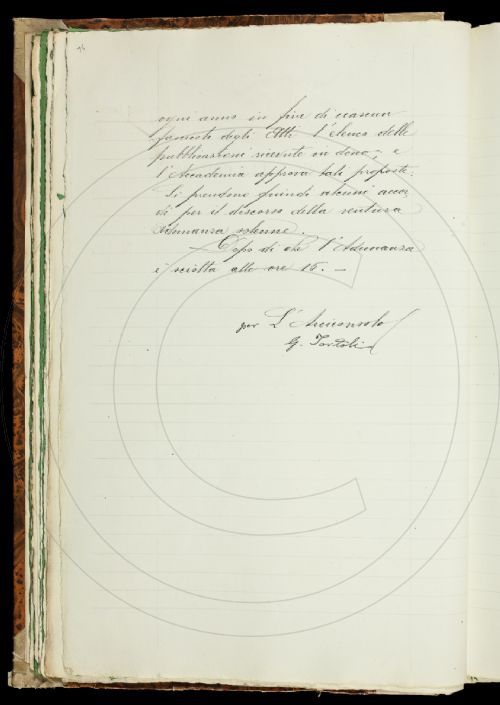 ogni anno in fine di ciascun
fascicolo degli Atti l'elenco delle
pubblicazioni ricevute in dono; e
l'Accademia approva tali proposte.
Si prendono quindi alcuni accor
di per il discorso della ventura
Adunanza solenne.
Dopo di che l'Adunanza
è sciolta alle ore 15. —
per L'Arciconsolo
G. Tortoli